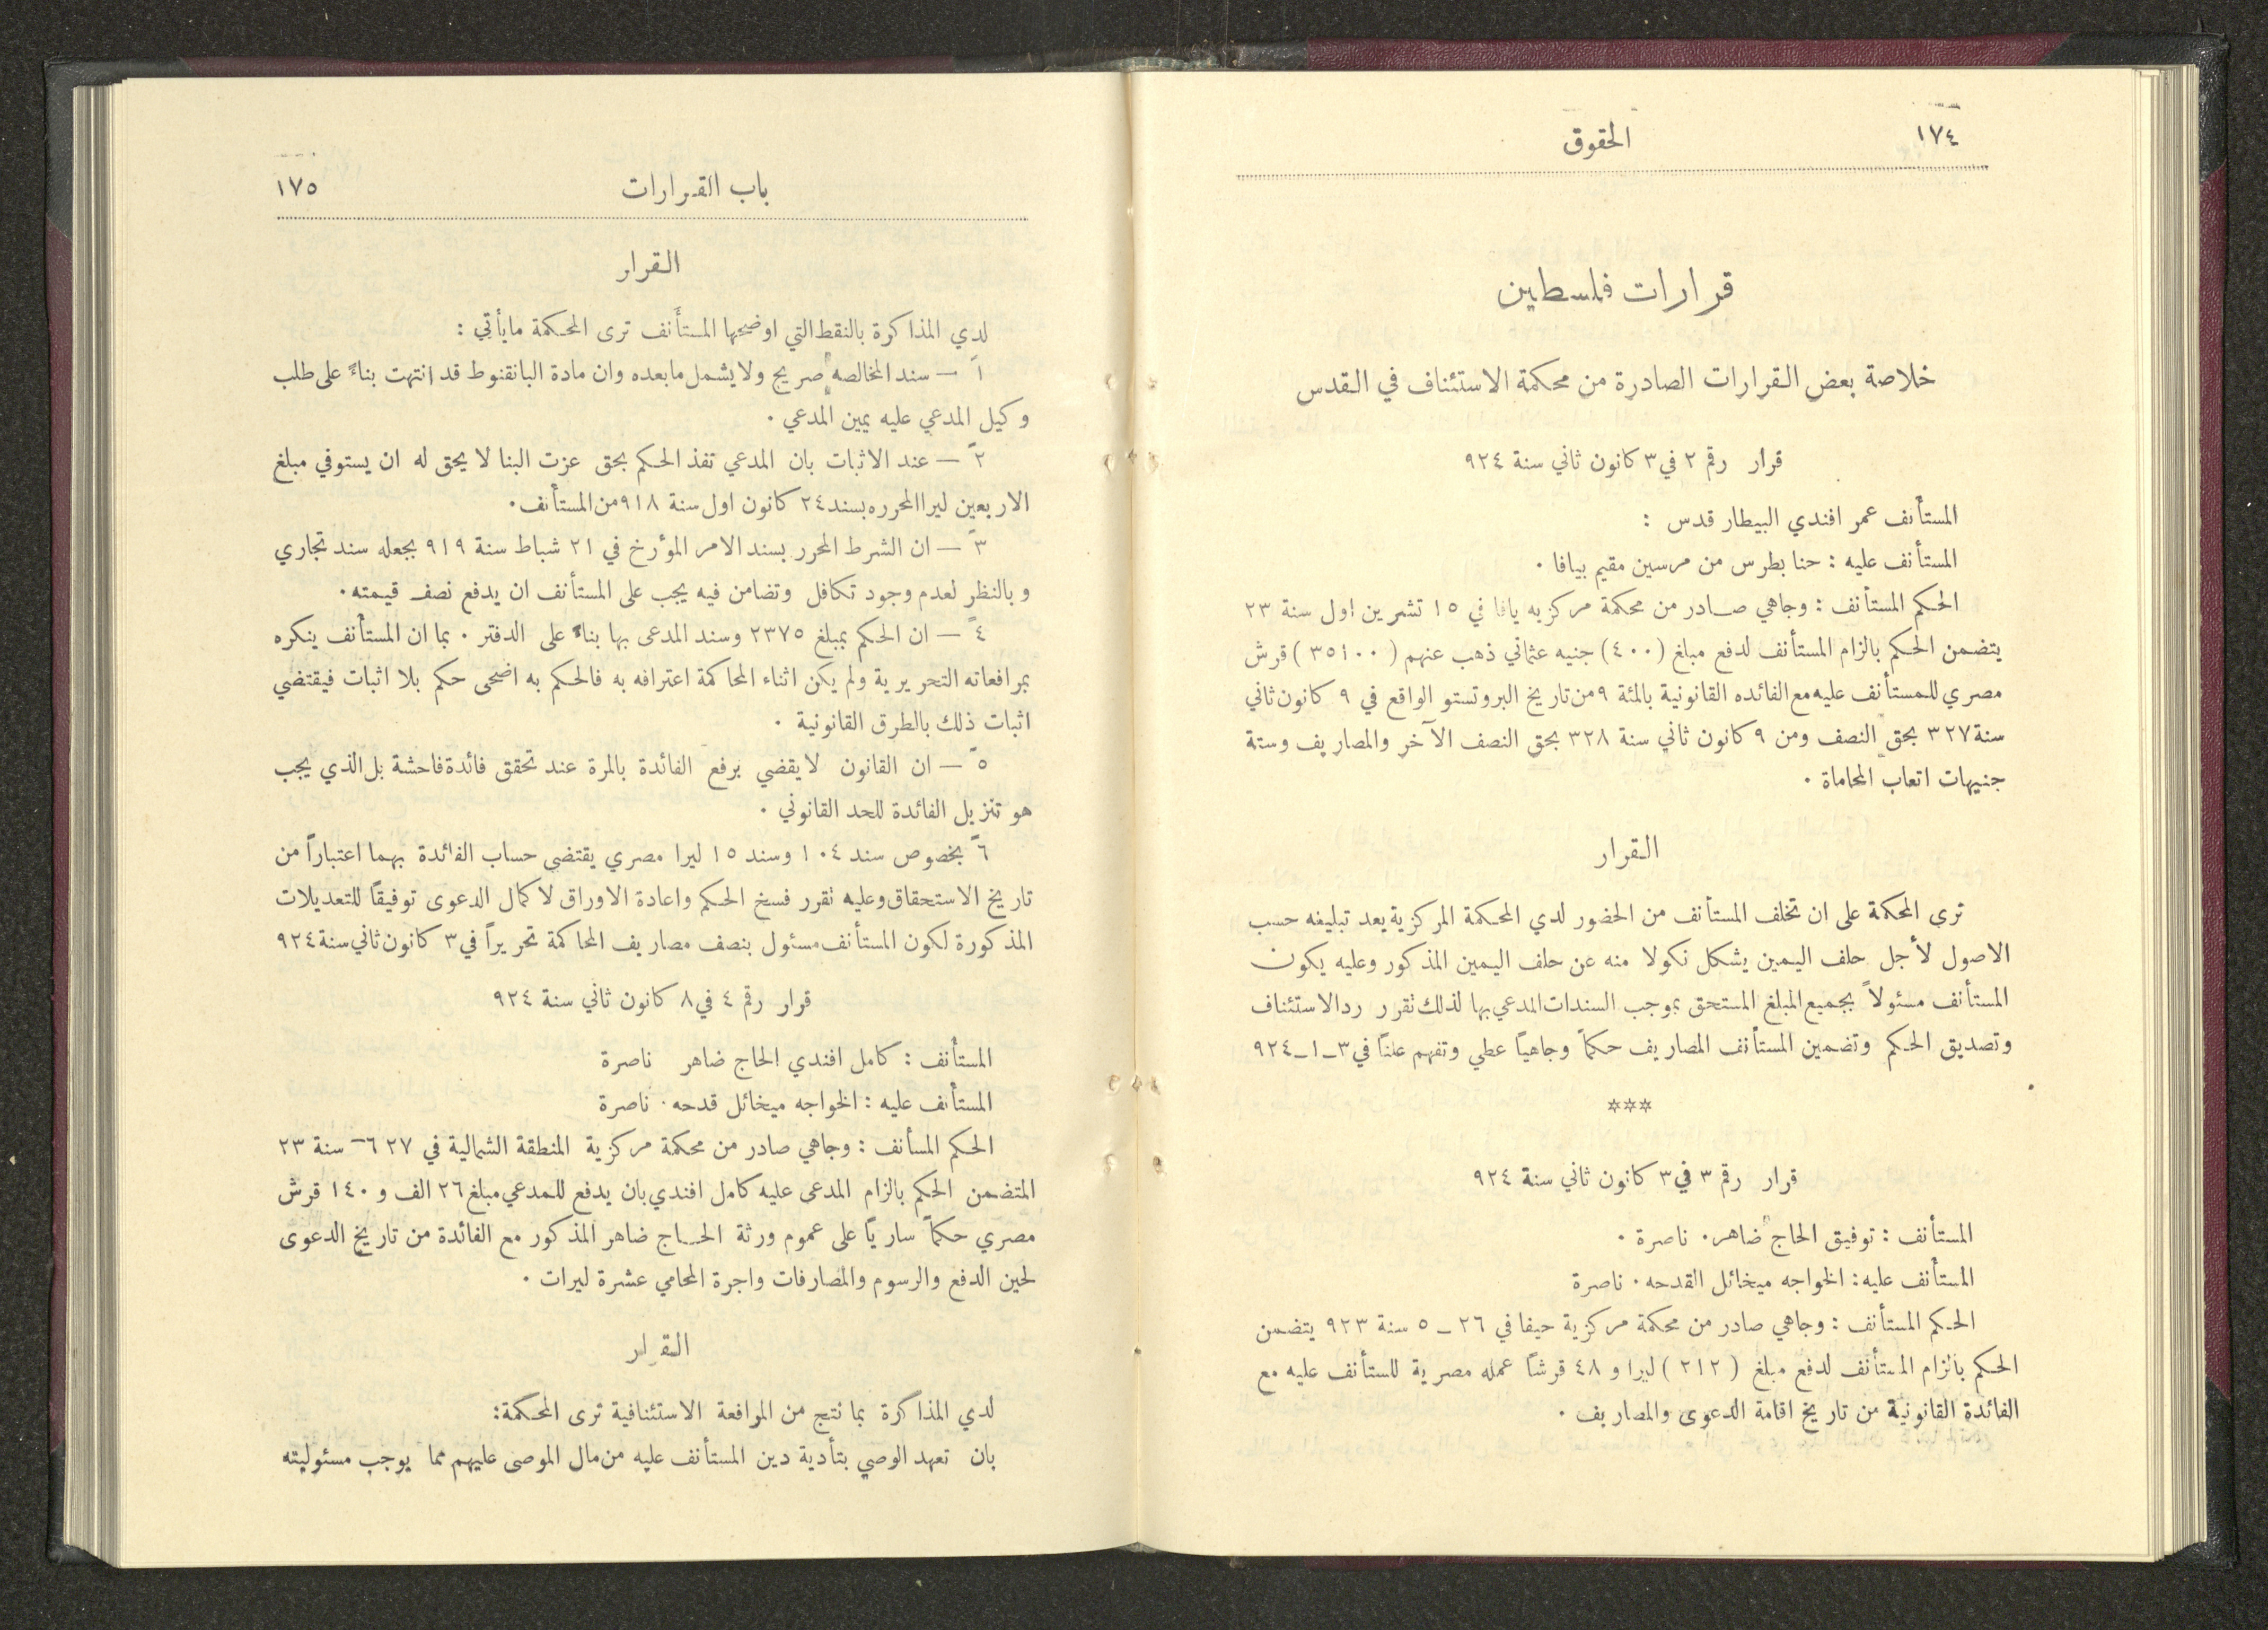 ١٧٤
الحقوق
قرارات فلسطين
خلاصة بعض القرارات الصادرة من محكمة الاستئناف في القدس
قرار رقم ٢ في ٣ كانون ثاني سنة ٩٢٤
المستأنف عمر افندي البيطار قدس :
المستأنف عليه : حنا بطرس من مرسين مقيم بيافا .
الحكم المستأنف : وجاهي صادر من محكمة مركزيه يافا في ١٥ تشرين اول سنة ٢٣
يتضمن الحكم بالزام المستأنف لدفع مبلغ (٤٠٠) جنيه عثماني ذهب عنهم (٣٥١٠٠) قرش
مصري للمستأنف عليه مع الفائده القانونية بالمئة ٩ من تاريخ البروتستو الواقع في ٩ كانون ثاني
سنة ٣٢٧ بحق النصف ومن ٩ كانون ثاني سنة ٣٢٨ بحق النصف الآخر والمصاريف وستة
جنيهات اتعاب المحاماة .
القرار
ترى المحكمة على ان تخلف المستأنف من الحضور لدي المحكمة المركزية بعد تبليغه حسب
الاصول لأجل حلف اليمين يشكل نكولا منه عن حلف اليمين المذكور وعليه يكون
المستأنف مسئولاً بجميع المبلغ المستحق بموجب السندات المدعي بها لذلك نقرر رد الاستئناف
وتصديق الحكم وتضمين المستأنف المصاريف حكماً وجاهياً عطي وتفهم علناً في ٣-١-٩٢٤
***
قرار رقم ٣ في ٣ كانون ثاني سنة ٩٢٤
المستأنف : توفيق الحاج ضاهر . ناصرة .
المستأنف عليه : الخواجه ميخائل القدحه . ناصرة
الحكم المستأنف : وجاهي صادر من محكمة مركزية حيفا في ٢٦-٥ سنة ٩٢٣ يتضمن
الحكم بالزام المستأنف لدفع مبلغ (٢١٢) ليرا و ٤٨ قرشاً عمله مصرية للستأنف عليه مع
الفائدة القانونية من تاريخ اقامة الدعوى والمصاريف .
باب القرارات
١٧٥
القرار
لدي المذاكرة بالنقط التي اوضحها المستأنف ترى المحكمة مايأتي :
١ً — سند المخالصه صريح ولا يشمل مابعده وان مادة البانقنوط قد انتهت بناءً على طلب
وكيل المدعي عليه يمين المدعي .
٢ً — عند الاثبات بان المدعي تفذ الحكم بحق عزت البنا لا يحق له ان يستوفي مبلغ
الاربعين ليرا المحرره بسند ٢٤ كانون اول سنة ٩١٨ من المستأنف .
٣ً — ان الشرط المحرر بسند الامر المؤرخ في ٢١ شباط سنة ٩١٩ بجعله سند تجاري
وبالنظر لعدم وجود تكافل وتضامن فيه يجب على المستأنف ان يدفع نصف قيمته .
٤ً — ان الحكم بمبلغ ٢٣٧٥ وسند المدعى بها بناءً على الدفتر . بما ان المستأنف ينكره
بمرافعاته التحريرية ولم يكن اثناء المحاكمة اعترافه به فالحكم به اضحى حكم بلا اثبات فيقتضي
اثبات ذلك بالطرق القانونية .
٥ً — ان القانون لا يقضي برفع الفائدة بالمرة عند تحقق فائدة فاحشة بل الذي يجب
هو تنزيل الفائدة للحد القانوني .
٦ً بخصوص سند ١٠٤ وسند ١٥ ليرا مصري يقتضى حساب الفائدة بهما اعتباراً من
تاريخ الاستحقاق وعليه نقرر فسخ الحكم واعادة الاوراق لاكمال الدعوى توفيقاً للتعديلات
المذكورة لكون المستأنف مسئول بنصف مصاريف المحاكمة تحريراً في ٣ كانون ثاني سنة ٩٢٤
قرار رقم ٤ في ٨ كانون ثاني سنة ٩٢٤
المستأنف : كامل افندي الحاج ضاهر ناصرة
المستأنف عليه : الخواجه ميخائل قدحه . ناصرة
الحكم المسأنف : وجاهي صادر من محكمة مركزية المنطقة الشمالية في ٢٧-٦ سنة ٢٣
المتضمن الحكم بالزام المدعى عليه كامل افندي بان يدفع للمدعي مبلغ ٢٦ الف و ١٤٠ قرش
مصري حكماً سارياً على عموم ورثة الحاج ضاهر المذكور مع الفائدة من تاريخ الدعوى
لحين الدفع والرسوم والمصارفات واجرة المحامي عشرة ليرات .
القرار
لدي المذاكرة بما نتج من المرافعة الاستئنافية ترى المحكمة:
بان تعهد الوصي بتأدية دين المستأنف عليه من مال الموصى عليهم مما يوجب مسئوليته